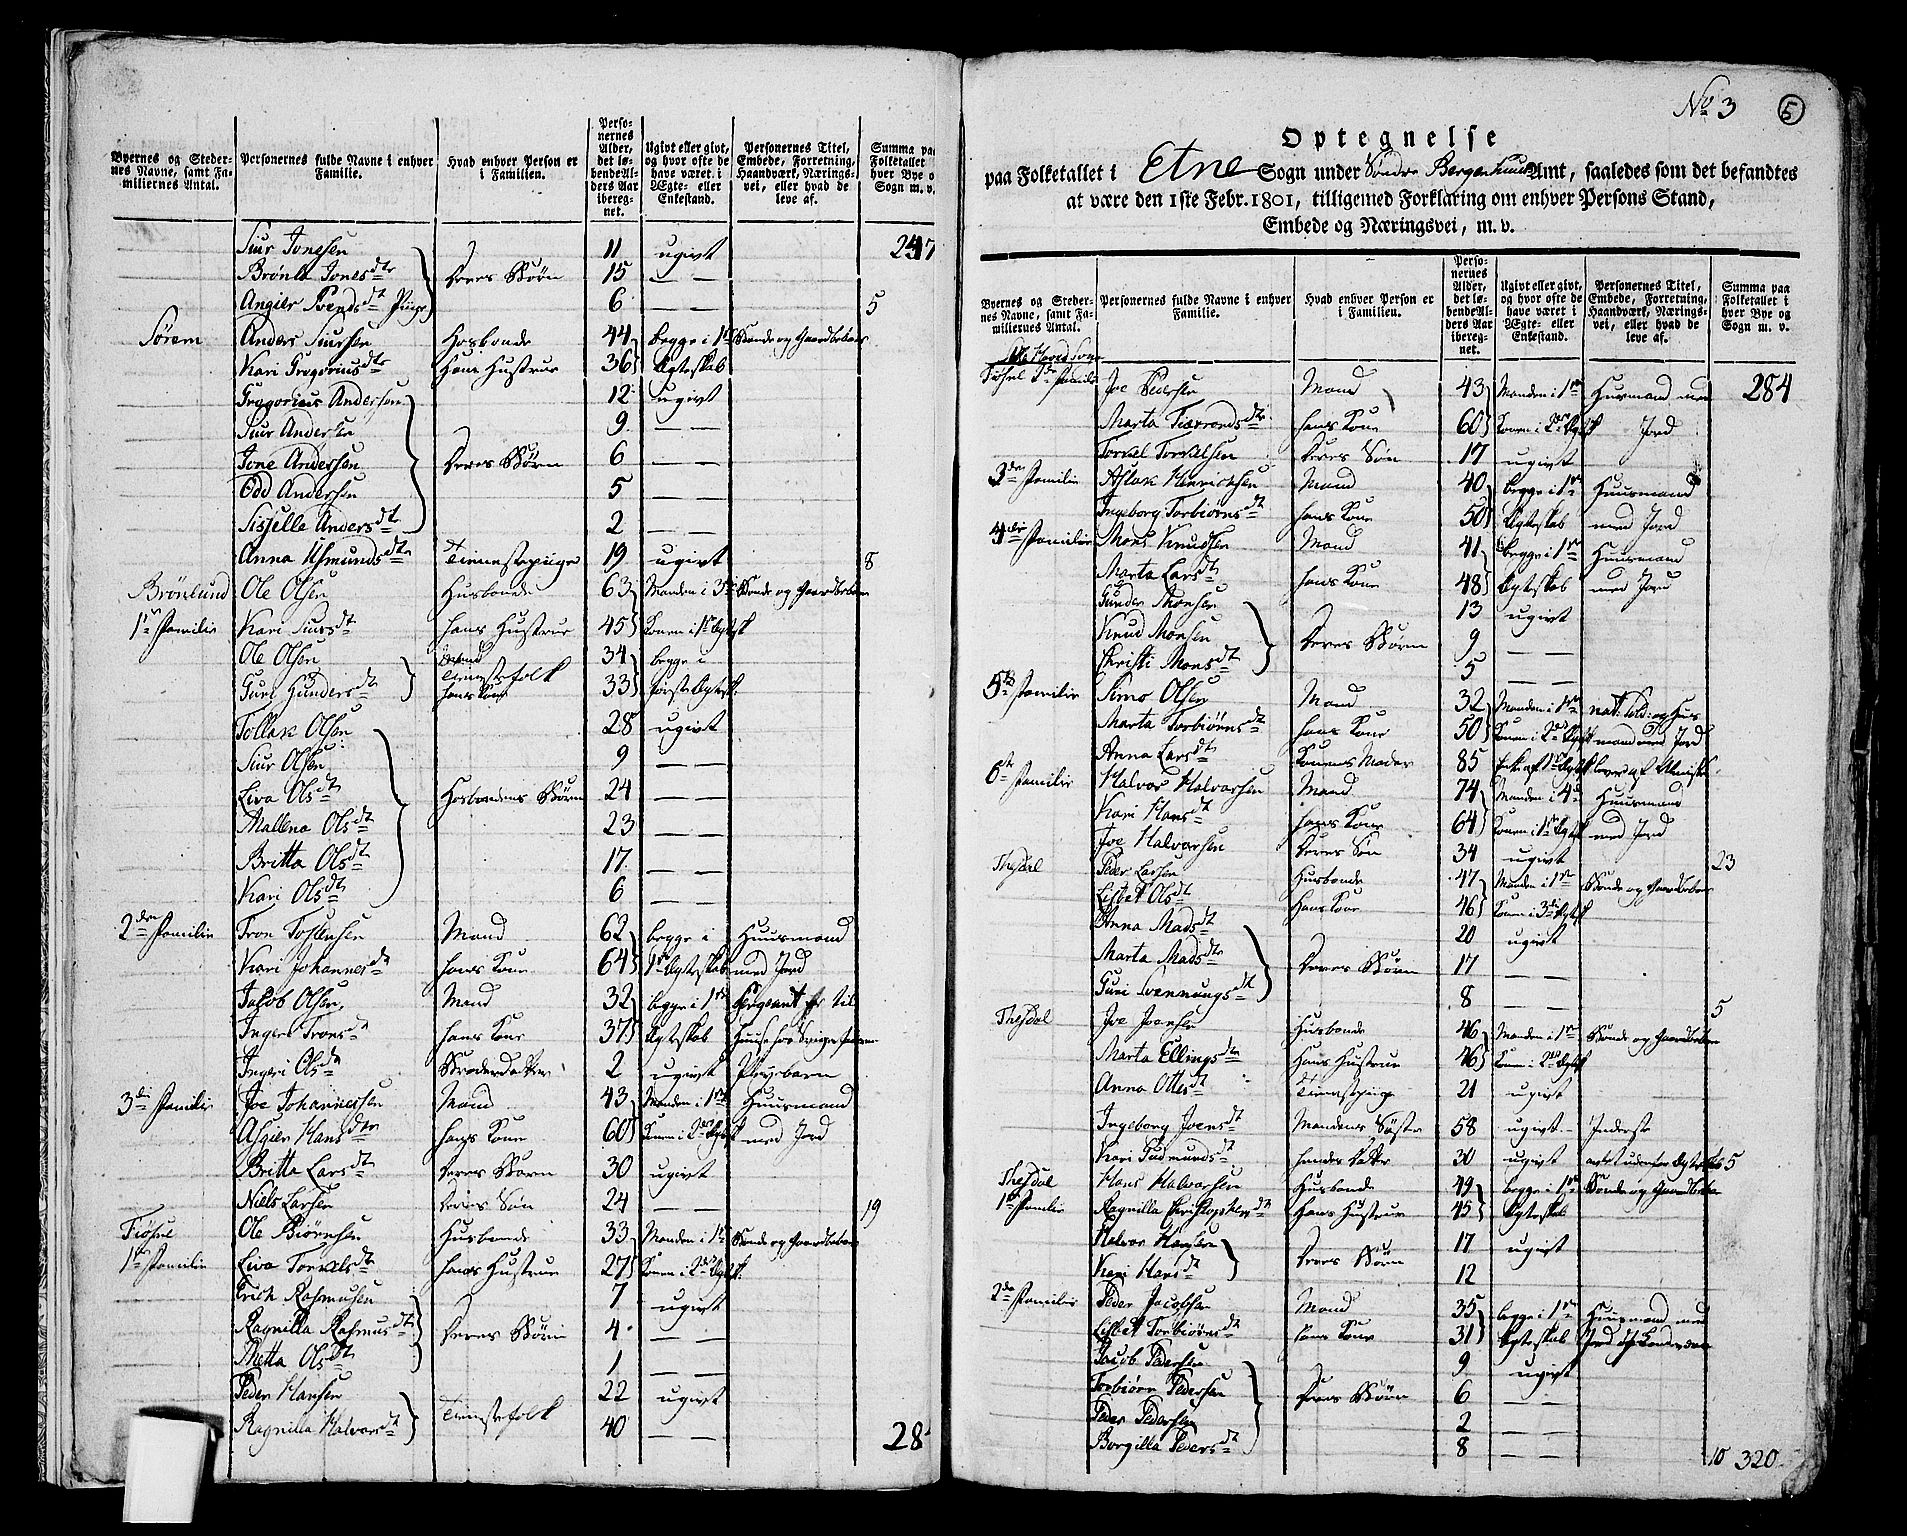 Byernes og Steder-nes Navne, samt Fa-miliernes Antal. | Personernes fulde Navne i enhver Familie. | Hvad enhver Person er i Familien. | Perso-nernes Alder, det lø-bende Al-ders Aar ibereg-net. | Ugivt eller givt, og hvor ofte de have været i Ægte- eller Enkestand. | Personernes Titel, Embede, Forretning, Haandværk, Nærings-vei, eller hvad de leve af. | Summa paa Folketallet i hver Bye og Sogn m. v.
Siur Jonesen | 11 | ugivt | 247
Brönla Jonesdtr | Deres Börn | 15 | — —
Angier Svendsdt Piige | 6 | — — | 5
Sörem | Anders Siursen | Hosbonde | 44 | begge i 1ste | Bonde og Gaardbeboer
Kari Gregoriusdt | Hans Hustrue | 36 | Ægteskab
Gregorius Andersen | 12 | ugivt
Siur Andersen | 9 | — —
Jone Andersen | Deres Börn | 6 | — —
Odd Andersen | 5 | — —
Sisselle Andersdt | 2 | — —
Anna Asmundsdtr | Tienestepiige | 19 | ugivt | 8
Brönlund | Ole Olsen | Husbonde | 63 | Manden i 3die | Bonde og Gaardbeboer
1te Familie | Kari Siursdt | hans Hustrue | 45 | Konen i 1te Ægtesk
Ole Olsen | Mand Tienestefolk | 34 | begge i
Guri Gundersdt | hans Kone | 33 | förste Ægtesk.
Tollak Olsen | 28 | ugivt
Siur Olsen | 9 | — —
Liva Olsdt | Hosbondens Börn | 24 | — —
Mallena Olsdt | 23 | — —
Britta Olsdt | 17 | — —
Kari Olsdt | 6 | — —
2den Familie | Tron Tostensen | Mand | 62 | begge i | Huusmand
Kari Johannesdt | hans Kone | 64 | 1te Ægteskab | med Jord
Jakob Olsen | Mand | 32 | begge i 1ste | Sergeant
Ingeri Tronsdt | hans Kone | 37 | Ægteskab
Ingeri Olsdt | Broderdatter | 2 | ugivt | Pleyebarn
3die Familie | Joe Johannessen | Mand | 43 | Manden i 1ste | Huusmand
Asgier Hansdtr | hans Kone | 60 | Konen i 2det Ægtesk | med Jord
Britta Larsdt | Deres Barn | 30 | ugivt
Niels Larsen | Deres Sön | 24 | — — | 19
Tiösne | Ole Biörnsen | Husbonde | 33 | Manden i 1te | Bonde og Gaardbeboer
1te Familie | Liva Torkelsdt | hans Hustrue | 27 | Konen i 2det Ægtesk.
Erich Rasmusen | 7 | ugivt
Ragnilla Rasmusdt | Deres Börn | 4 | — —
Metta Olsdt | 1 | — —
Peder Hansen | Tienestefolk | 22 | ugivt
Ragnilla Halvorsdt | 40 | — — | 28
No 3 | 5
Optegnelse
paa Folketallet i Etne Sogn under Söndre Bergenhuus Amt, saaledes som det befandtes
at være den 1ste Febr. 1801, tilligemed Forklaring om enhver Persons Stand,
Embede og Næringsvei, m. v.
Byernes og Steder-nes Navne, samt Fa-miliernes Antal. | Personernes fulde Navne i enhver Familie. | Hvad enhver Person er i Familien. | Perso-nernes Alder, det lø-bende Al-ders Aar ibereg-net. | Ugivt eller givt, og hvor ofte de have været i Ægte- eller Enkestand. | Personernes Titel, Embede, Forretning, Haandværk, Nærings-vei, eller hvad de leve af. | Summa paa Folketallet i hver Bye og Sogn m. v.
Tiösne 2den Familie | Joe Pedersen | Mand | 43 | Manden i 1te | Huusmand med | 284
Marta Tiærandsdtr | hans Kone | 60 | Konen i 2det Ægtesk | Jord
Torkel Torkelsen | Deres Sön | 17 | ugivt
3die Familie | Aslak Henrichsen | Mand | 40 | begge i 1te | Huusmand
Ingeborg Torbiörnsdt | hans Kone | 50 | Ægteskab | med Jord
4die Familie | Mons Knudsen | Mand | 41 | begge i 1te | Huusmand
Marta Larsdt | hans Kone | 48 | Ægteskab | med Jord
Gunder Monsen | 13 | ugivt
Knud Monsen | Deres Börn | 9 | — —
Christi Monsdt | 5 | — —
5te Familie | Simo Olsen | Mand | 32 | Manden i 1te | nat: Sold: og Huus
Marta Torbiörnsdt | hans Kone | 50 | Konen i 2det Ægtesk | mand med Jord
Anna Larsdt | Konens Moder | 85 | Enke af 1te Ægtesk | lever af Almisse
6te Familie | Halvor Halvorsen | Mand | 74 | Manden i 4de | Huusmand
Kari Hansdt | hans Kone | 64 | Konen i 1te Ægtesk | med Jord
Joe Halvorsen | Deres Sön | 34 | ugivt | 23
Thesdal | Peder Larsen | Husbonde | 47 | Manden i 1te | Bonde og Gaardbeboer
Lisbet Olsdt | Hans Kone | 46 | Konen i 3die Ægtesk
Anna Madsdt | 20 | ugivt
Marta Madsdtr | Deres Börn | 17 | — —
Guri Svenningsdt | 8 | — — | 5
Thesdal | Joe Joensen | Husbonde | 46 | Manden i 1te | Bonde og Gaardbeboer
Marta Ellingsdtr | Hans Hustrue | 46 | Konen i 2det Ægtesk
Anna Ottesdt | Tienestepiige | 21 | ugivt
Ingeborg Joensdt | Mandens Söster | 58 | ugivt | Inderste
Kari Gudmundsdt | hendes Datter | 30 | ugivt | avlet udenfor Ægteskab | 5
Thesdal | Hans Halvorsen | Husbonde | 49 | begge i 1te | Bonde og Gaardbeboer
1te Familie | Ragnilla Christophersdt | Hans Hustrue | 45 | Ægteskab
Halvor Hansen | Deres Börn | 17 | ugivt
Kari Hansdt | 12
2de Familie | Peder Jacobsen | Mand | 35 | begge i 1te | Huusmand med
Lisbet Torbiörnsdt | hans Kone | 31 | Ægteskab | Jord
Jacob Pedersen | 9 | ugivt
Torbiörn Pedersen | Deres Börn | 6 | — —
Peder Pedersen | 2 | — —
Borgilla Pedersdt | 8 | — — | 10 | 320